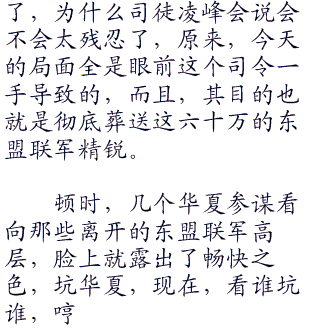 了，为什么司徒凌峰会说会
不会太残忍了，原来，今天
的局面全是眼前这个司令一
手导致的，而且，其目的也
就是彻底葬送这六十万的东
盟联军精锐。
顿时，几个华夏参谋看
向那些离开的东盟联军高
层，脸上就露出了畅快之
色，坑华夏，现在，看谁坑
谁，哼